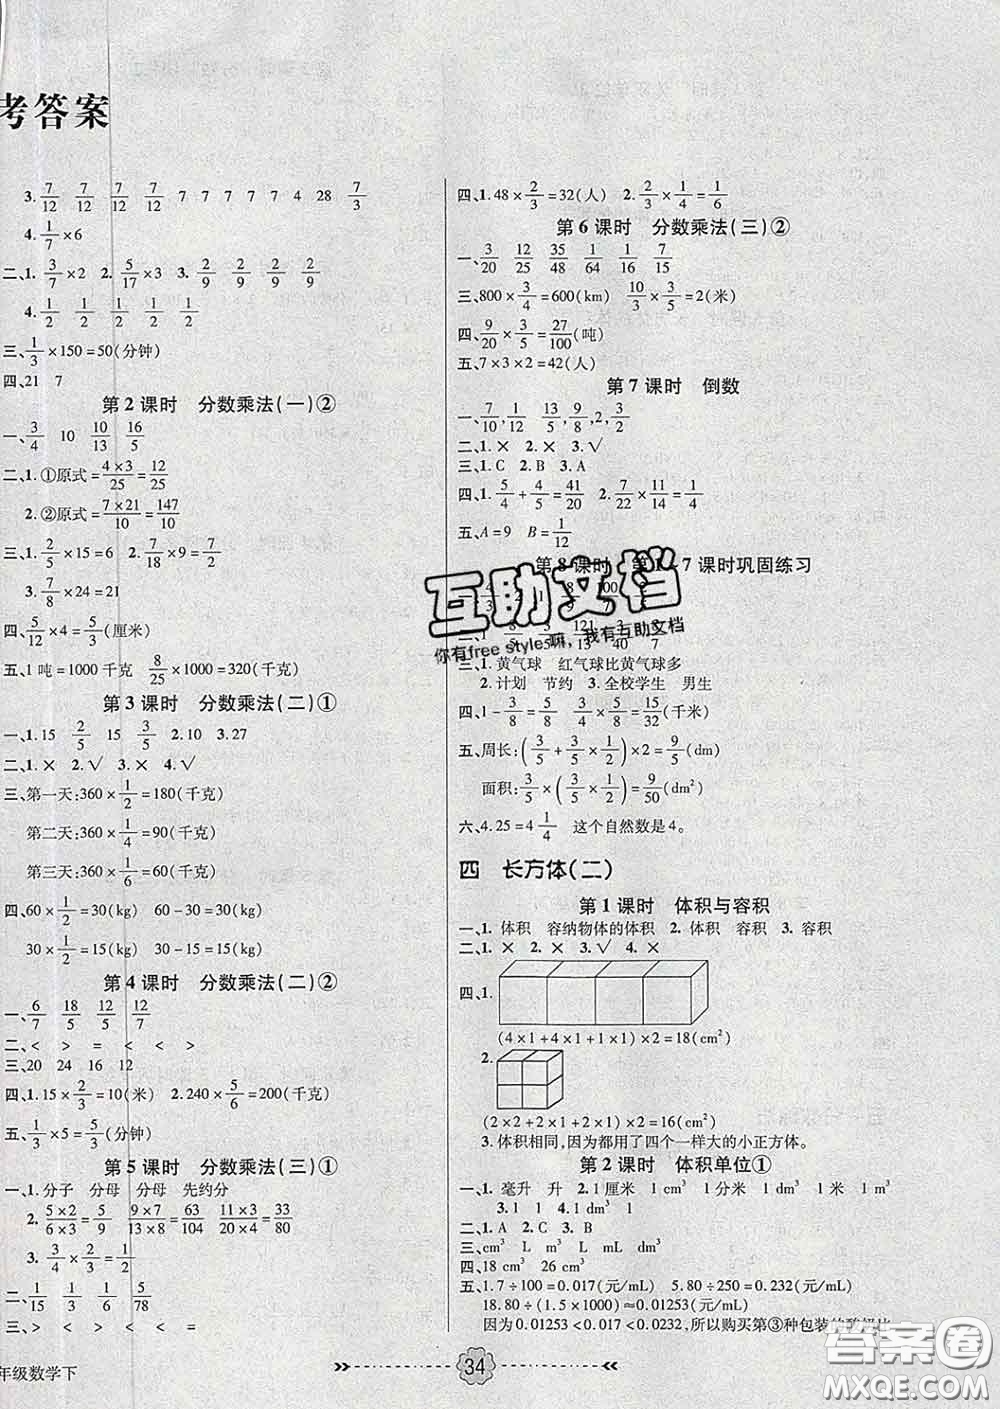 考答案
3. 7/12 7/12 7/12 7/12 7 7 7 7 4 28 7/3
4. 1/7×6
二、1. 3/7×2 2. 5/17×3 3. 2/9 2/9 2/9 2/9
4. 1/2 1/2 1/2 1/2 1/2
三、1/3×150=50(分钟)
四、21 7
第2课时 分数乘法(一)②
一、3/4 10 10/13 16/5
二、1. ①原式=(4×3)/25=12/25
2. ②原式=(7×21)/10=147/10
三、1. 2/5×15=6 2. 7/18×9=7/2
3. 7/8×24=21
四、5/12×4=5/3(厘米)
五、1吨=1000千克 8/25×1000=320(千克)
第3课时 分数乘法(二)①
一、1. 15 2/5 15 3/5 2. 10 3. 27
二、1. × 2. √ 3. × 4. √
三、第一天:360×1/2=180(千克)
第二天:360×1/4=90(千克)
第三天:360×1/6=60(千克)
四、60×1/2=30(kg) 60-30=30(kg)
30×1/2=15(kg) 30-15=15(kg)
第4课时 分数乘法(二)②
一、6/7 18/5 12/5 12/7
二、< > = < < >
三、20 24 16 12
四、1. 15×2/3=10(米) 2. 240×5/6=200(千克)
五、1/3×5=5/3(分钟)
第5课时 分数乘法(三)①
一、1. 分子 分母 分母 先约分
2. (5×2)/(6×3)=5/9 (9×7)/(13×8)=63/104 (11×3)/(20×4)=33/80
3. 3/4×2/3=1/2
二、1/15 1/3 1/6 5/78
三、> > < < < =
年级数学下
四、1. 48×2/3=32(人) 2. 2/3×1/4=1/6
第6课时 分数乘法(三)②
一、3/20 12/25 35/48 1/64 1/16 7/15
三、800×3/4=600(km) 10/3×3/5=2(米)
四、9/20×3/5=27/100(吨)
五、7×3×2=42(人)
第7课时 倒数
一、7/10,1/12 13/5,9/8,2,2/9
二、1. × 2. × 3. √
三、1. C 2. B 3. A
四、1. 5/4+4/5=41/20 2. 7/22×11/14=1/4
五、A=9 B=1/12
第8课时 第 7课时巩固练习
三、1. 黄气球 红气球比黄气球多
2. 计划 节约 3. 全校学生 男生
四、1-3/8=5/8 3/4×5/8=15/32(千米)
五、周长:(3/5+3/5×1/2)×2=9/5(dm)
面积:3/5×(3/5×1/2)=9/50(dm²)
六、4.25=4 1/4 这个自然数是4。
四 长方体(二)
第1课时 体积与容积
一、1. 体积 容纳物体的体积 2. 体积 容积 3. 容积
二、1. × 2. × 3. √ 4. ×
四、1.
(4×1+4×1+1×1)×2=18(cm²)
2.
(2×2+2×1+2×1)×2=16(cm²)
3. 体积相同,因为都用了四个一样大的小正方体。
第2课时 体积单位①
一、1. 毫升 升 2. 1厘米 1 cm³ 1分米 1 dm³ 1米 1 m³
3. 1 1 4. 1 dm³ 1
二、1. A 2. C 3. B
三、cm³ L m³ L L cm³
四、18 cm³ 26 cm³
五、1.7÷100=0.017(元/mL) 5.80÷250=0.232(元/mL)
18.80÷(1.5×1000)≈0.01253(元/mL)
因为0.01253<0.017<0.0232,所以购买第③种包装的酸奶比
34
互助文档
你有free style嘛,我有互助文档
答案圈
MXQE.COM